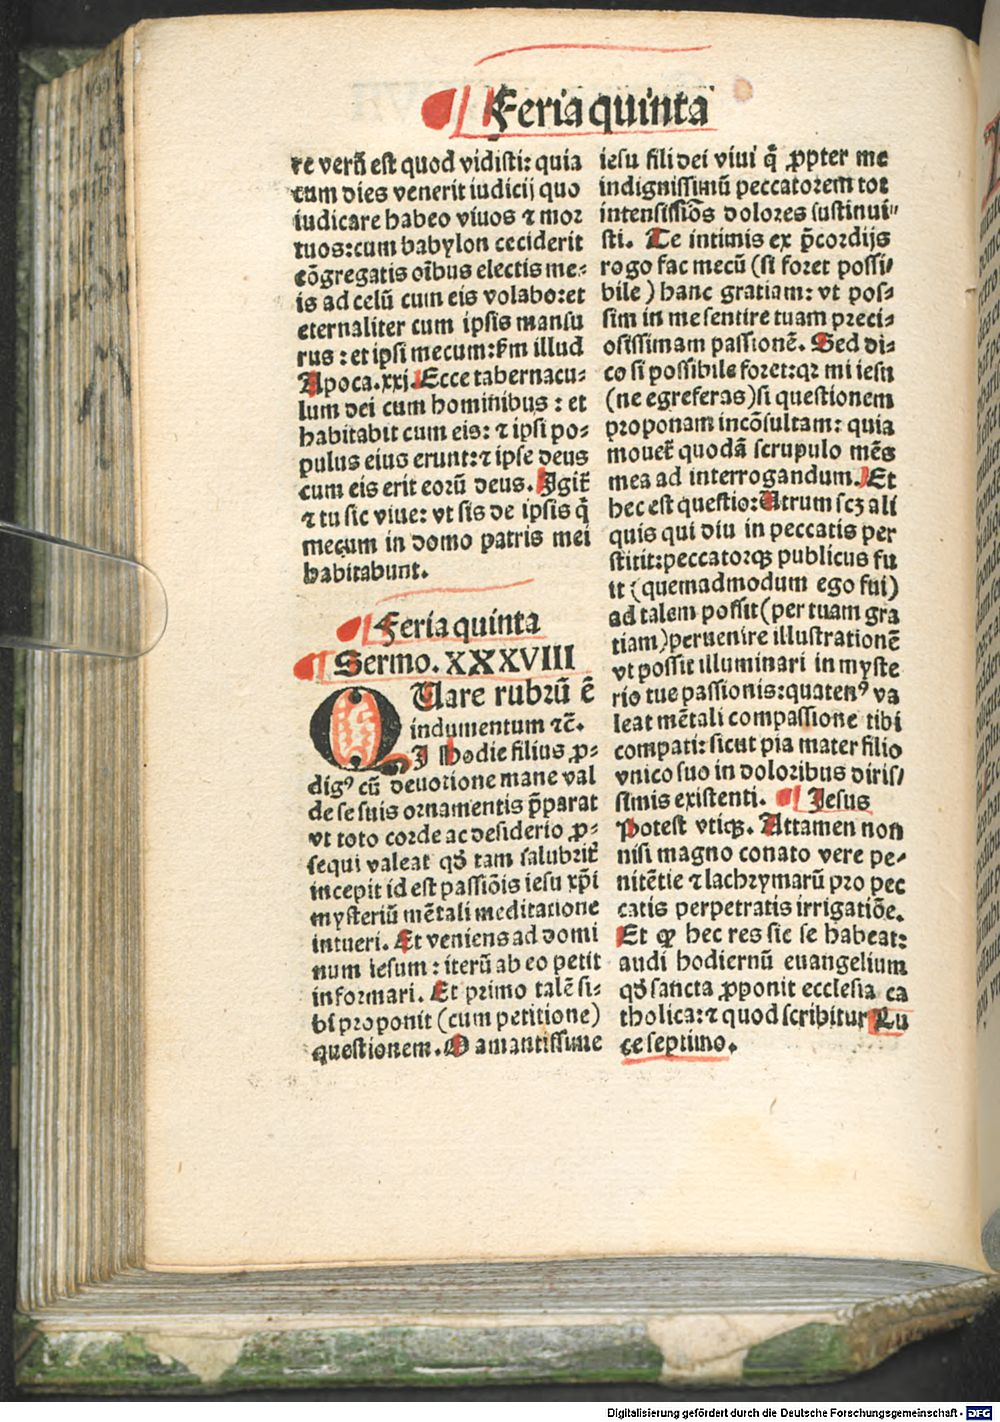 Feria quinta
re verū est quod vidisti: quia
cum dies venerit iudicij quo
iudicare habeo viuos ⁊ mor
tuos: cum babylon ceciderit
cōgregatis oībus electis me⸗
is ad celū cum eis volabo: et
eternaliter cum ipsis mansu
rus: et ipsi mecum: km̄ illud
Apoca. xxj. Ecce tabernacu⸗
lum dei cum hominibus: et
habitabit cum eis: ⁊ ipsi po⸗
pulus eius erunt: ⁊ ipse deus
cum eis erit eorū deus. Igit̄
⁊ tu sic viue: vt sis de ipsis q̄
mecum in domo patris mei
habitabunt.
Feria quinta
Sermo. XXXVIII
QUare rubrū ē
indumentum ⁊c̄.
I Hodie filius ꝓ⸗
digꝰ cū deuotione mane val
de se suis ornamentis p̄parat
vt toto corde ac desiderio ꝓ⸗
sequi valeat qd̄ tam salubrit̄
incepit id est passiōis iesu xp̄i
mysteriū mētali meditatione
intueri. Et veniens ad domi
num iesum: iterū ab eo petit
informari. Et primo talē si⸗
bi proponit (cum petitione)
questionem. O amantissime
iesu fili dei viui q̄ ꝓpter me
indignissimū peccatorem tot
intensissiōs dolores sustinui
sti. Te intimis ex p̄cordijs
rogo fac mecū (si foret possi⸗
bile) hanc gratiam: vt pos⸗
sim in me sentire tuam preci⸗
osissimam passionē. Sed di⸗
co si possibile foret: qꝛ mi iesu
(ne egreferas) si questionem
proponam incōsultam: quia
mouet̄ quodā scrupulo mēs
mea ad interrogandum. Et
hec est questio: Utrum scꝫ ali
quis qui diu in peccatis per
stitit: peccatorqꝫ publicus fu
it (quemadmodum ego fui)
ad talem possit (per tuam gra
tiam) peruenire illustrationē
vt possit illuminari in myste
rio tue passionis: quatenꝰ va
leat mētali compassione tibi
compati: sicut pia mater filio
vnico suo in doloribus diris⸗
simis existenti. Jesus
Potest vtiqꝫ. Attamen non
nisi magno conato vere pe⸗
nitētie ⁊ lachrymarū pro pec
catis perpetratis irrigatiōe.
Et ꝙ hec res sic se habeat:
audi hodiernū euangelium
qd̄ sancta ꝓponit ecclesia ca
tholica: ⁊ quod scribitur Lu
ce septimo.
Digitalisierung gefördert durch die Deutsche Forschungsgemeinschaft - DFG